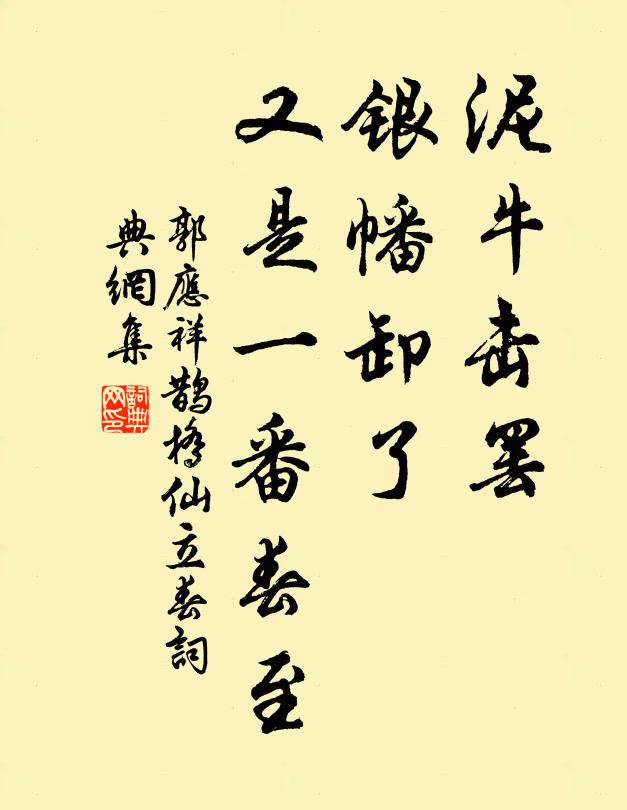 泥牛击罢
银幡卸了
又是一番春至
郭應祥鹊橋仙立春詞
典網集
詞典網印